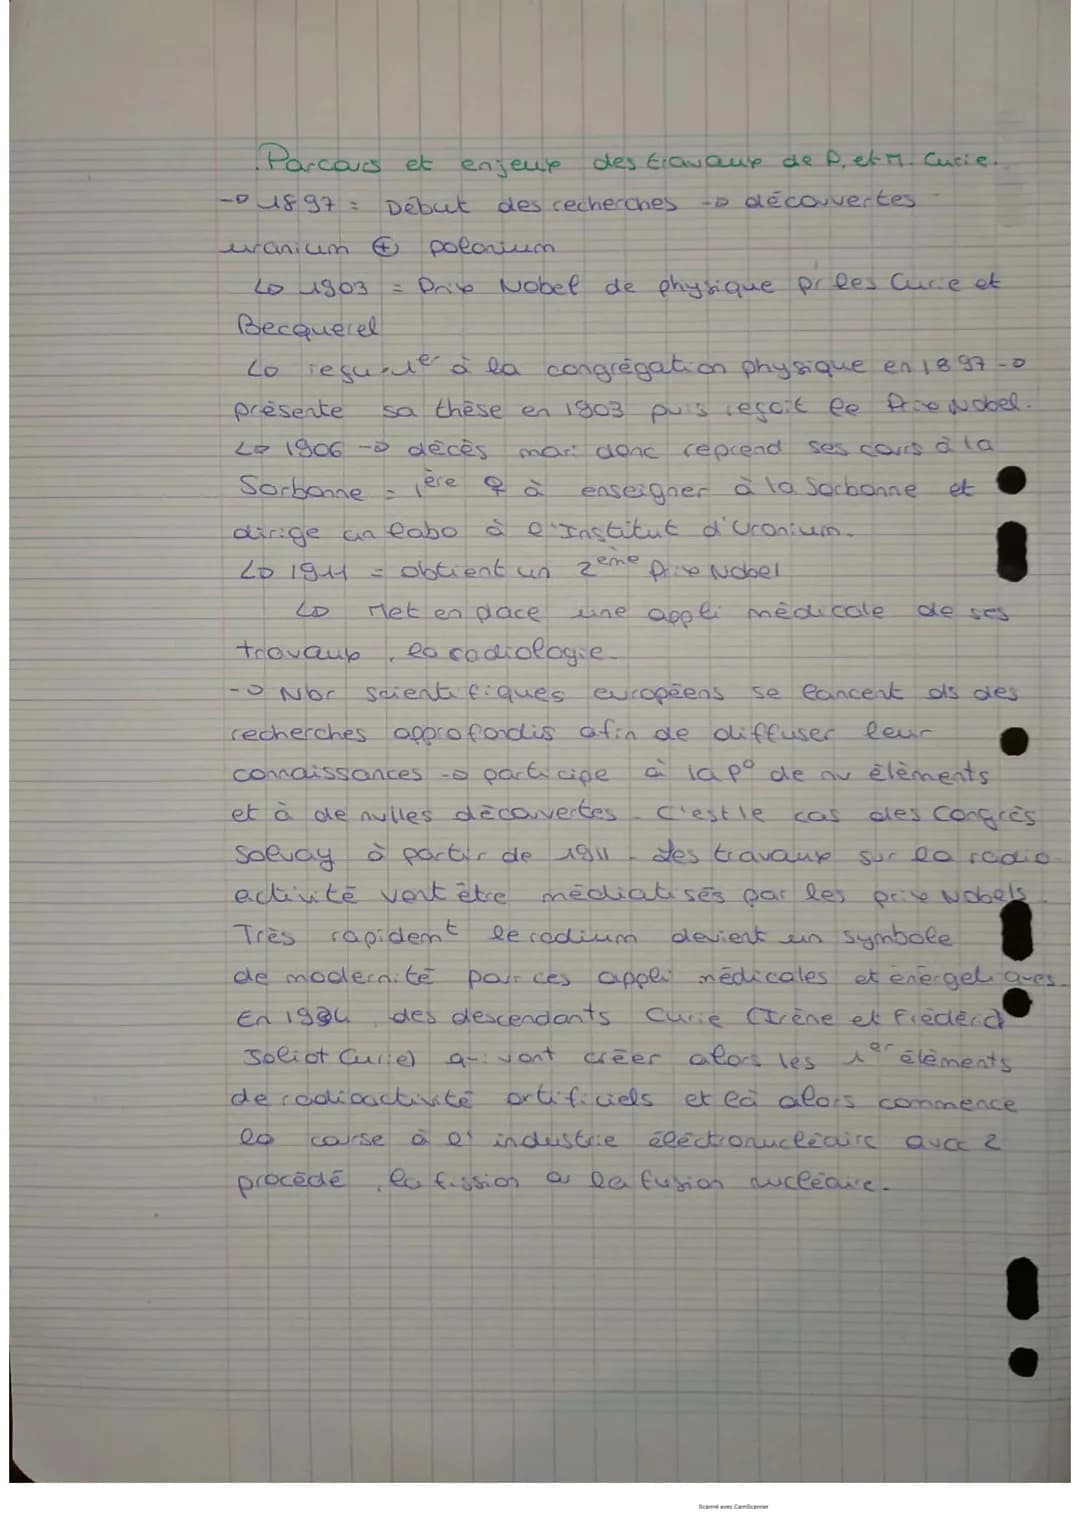 Parcours et enjeux des travaux de P. et M. Curie.
→ 1897 = Début des recherches → découvertes
uranium ⊕ polonium
↳ 1903 = Prix Nobel de physique pr les Curie et
Becquerel
↳ reçu 1er à la congrégation physique en 1897 →
présente sa thèse en 1903 puis reçoit le Prix Nobel.
↳ 1906 → décès mari donc reprend ses cours à la
Sorbonne = 1ère ♀ à enseigner à la Sorbonne et
dirige un labo à l'Institut d'Uranium.
↳ 1911 = obtient un 2ème prix Nobel
↳ Met en place une appli médicale de ses
travaux, la radiologie.
→ Nbr scientifiques européens se lancent ds des
recherches approfondis afin de diffuser leur
connaissances → participe à la p° de nv éléments
et à de nvlles découvertes. C'est le cas des Congrès
Solvay à partir de 1911. Les travaux sur la radio
activité vont être médiatisés par les prix Nobels
Très rapidemt le radium devient un symbole
de modernité par ces appli médicales et énergétiques.
En 1934 des descendants Curie (Irène et Fréderic
Joliot Curie) qui vont créer alors les 1er éléments
de radioactivité artificiels et là alors commence
la course à l'industrie éléctronucléaire avec 2
procédé, la fission ou la fusion nucléaire.
Scanné avec CamScanner